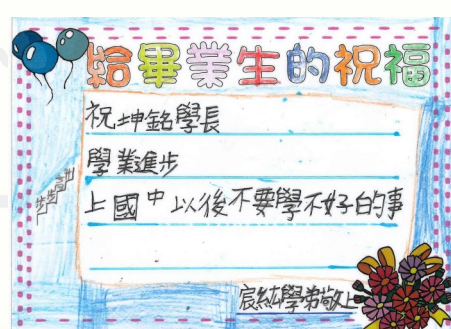 給畢業生的祝福
祝坤銘學長
學業進步
上國中以後不要學不好的事
步步高升
宸紘學弟敬上